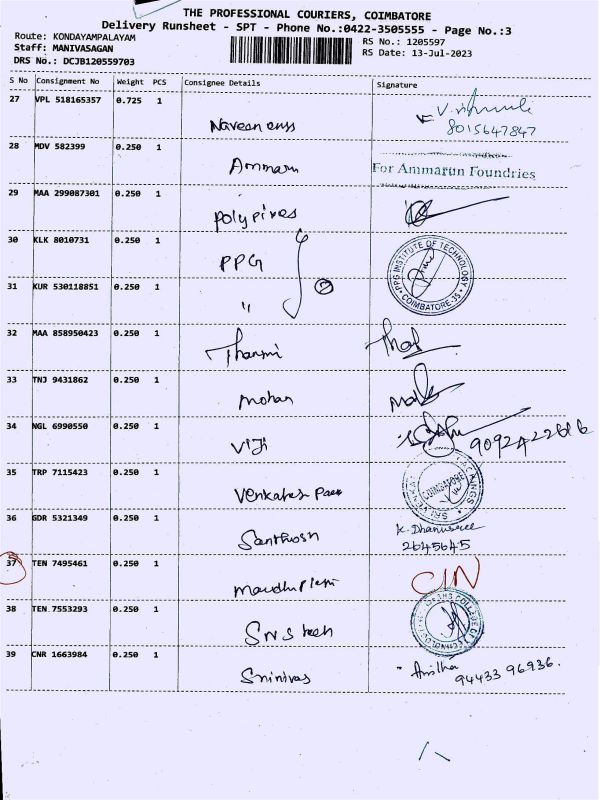 THE PROFESSIONAL COURIERS, COIMBATORE
Delivery Runsheet - SPT - Phone No.:0422-3505555 - Page No.:3
Route: KONDAYAMPALAYAM
RS No.: 1205597
Staff: MANIVASAGAN
RS Date: 13-Jul-2023
DRS No.: DCJB120559703
S No Consignment No Weight PCS Consignee Details Signature
27 VPL 518165357 0.725 1 Naveen
8015647847
28 MDV 582399 0.250 1 Ammarun For Ammarun Foundries
29 MAA 299087301 0.250 1 Polypipes
30 KLK 8010731 0.250 1 PPG PPG INSTITUTE OF TECHNOLOGY COIMBATORE-35
31 KUR 530118851 0.250 1 " 2
32 MAA 858950423 0.250 1
33 TNJ 9431862 0.250 1 mohan
34 NGL 6990550 0.250 1 Viji
35 TRP 7115423 0.250 1 Venkatesh COIMBATORE
36 GDR 5321349 0.250 1 Santhosh K. Dhanusree
2645645
37 TEN 7495461 0.250 1
38 TEN 7553293 0.250 1
39 CNR 1663984 0.250 1 Srinivas
94433 96936.